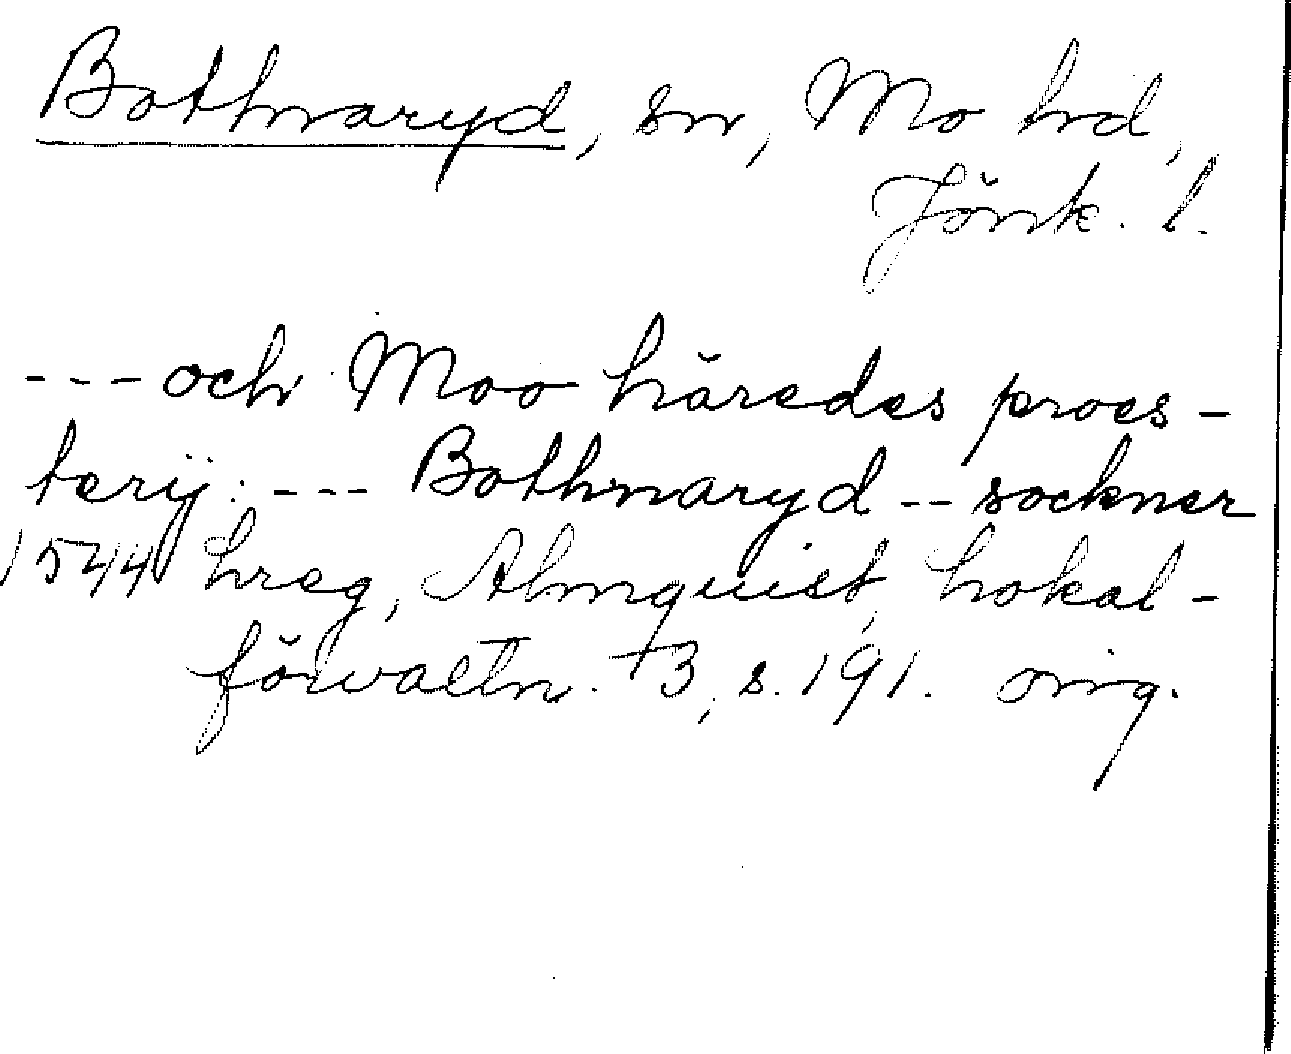 Bothnaryd, sn, Mo hd,
Jönk. l.
--- och Moo häredes proes-
terij: --- Bothnaryd -- sockner
1544 Lreg, Almquist, Lokal-
förvaltn. +3, s. 191. orig.